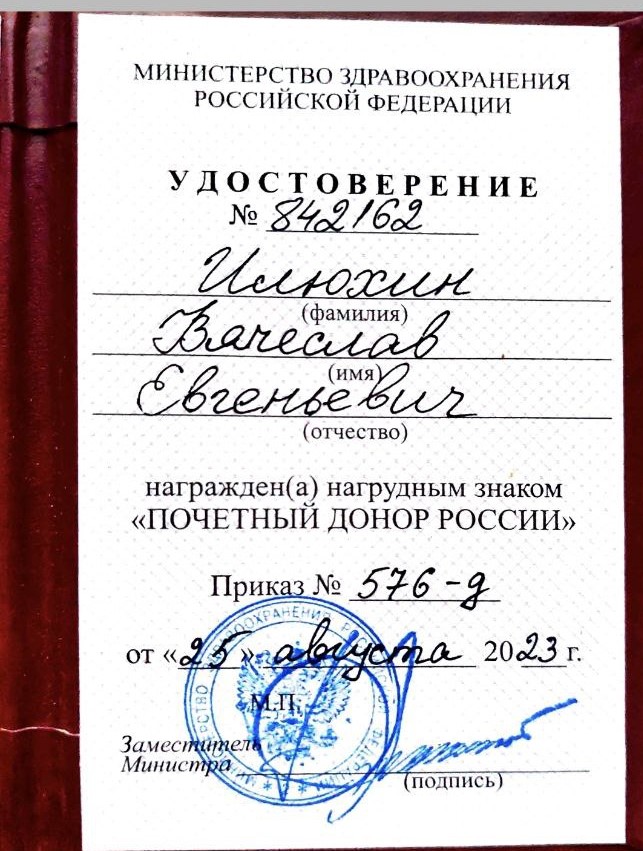 МИНИСТЕРСТВО ЗДРАВООХРАНЕНИЯ
РОССИЙСКОЙ ФЕДЕРАЦИИ
УДОСТОВЕРЕНИЕ
№ 842162
Илюхин
(фамилия)
Вячеслав
(имя)
Евгеньевич
(отчество)
награжден(а) нагрудным знаком
«ПОЧЕТНЫЙ ДОНОР РОССИИ»
Приказ № 576-д
от «25» августа 2023 г.
М.П.
Заместитель
Министра
(подпись)